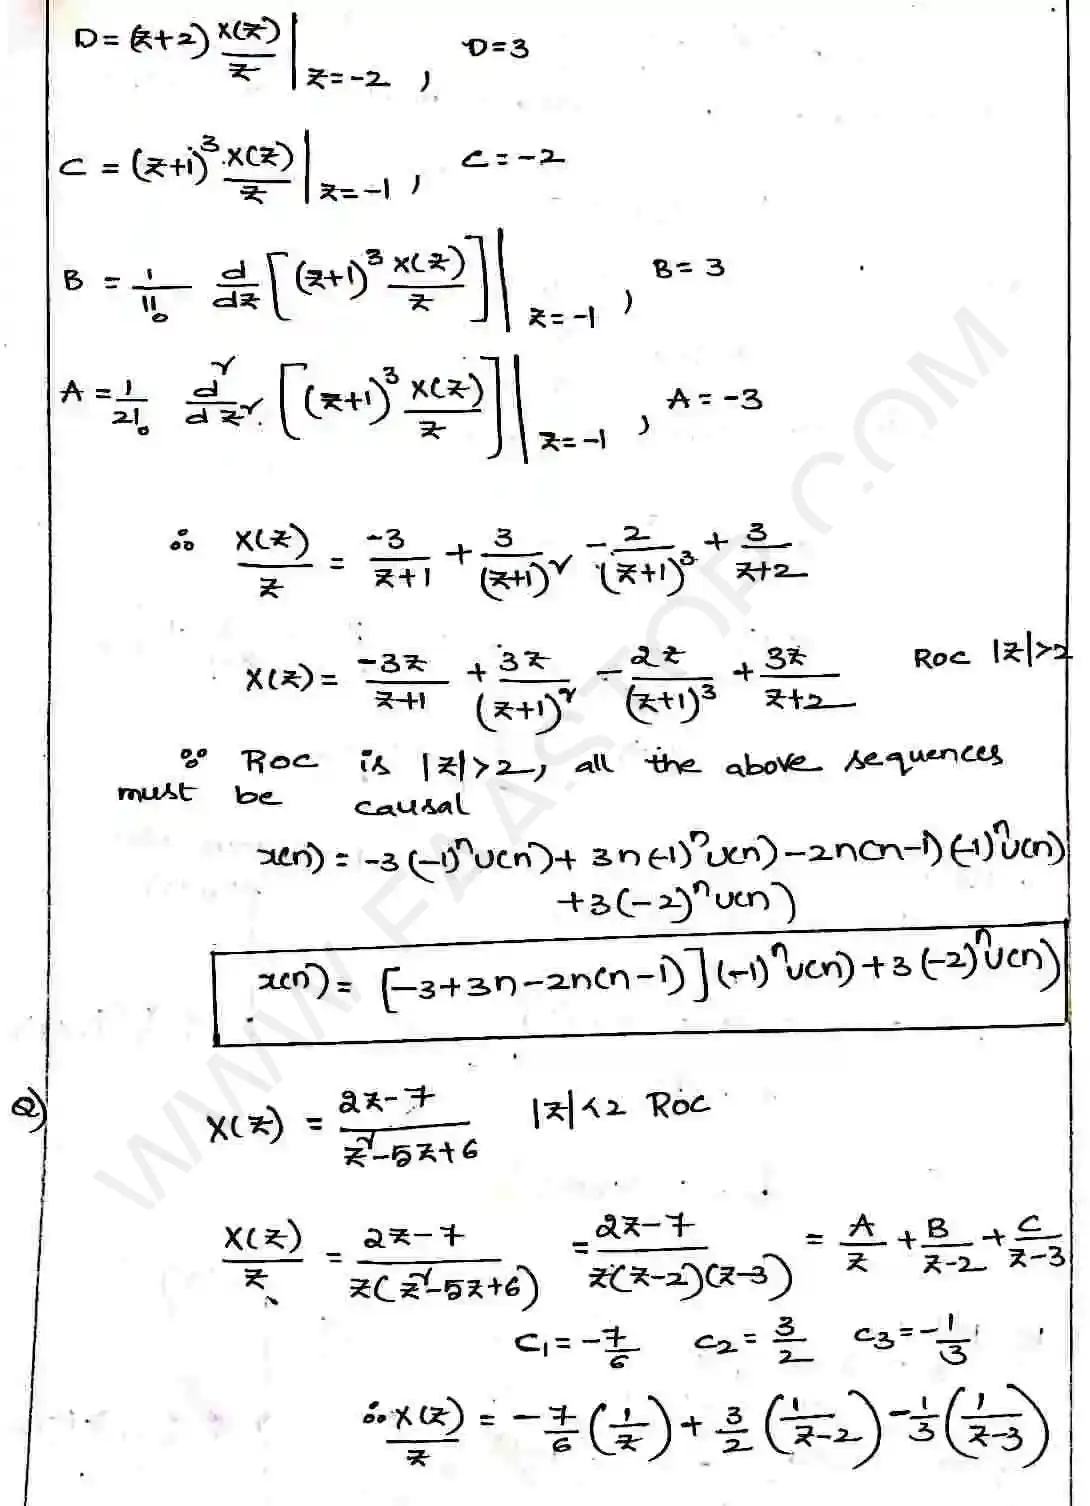 D = (z+2) X(z)/z |z=-2 , D=3
C = (z+1)^3 X(z)/z |z=-1 , C=-2
B = 1/1! d/dz [(z+1)^3 X(z)/z] |z=-1 , B=3
A = 1/2! d^2/dz^2 [(z+1)^3 X(z)/z] |z=-1 , A=-3
∴ X(z)/z = -3/(z+1) + 3/(z+1)^2 - 2/(z+1)^3 + 3/(z+2)
X(z) = -3z/(z+1) + 3z/(z+1)^2 - 2z/(z+1)^3 + 3z/(z+2) ROC |z|>2
∵ ROC is |z|>2, all the above sequences
must be causal
x(n) = -3(-1)^n u(n) + 3n(-1)^n u(n) - 2n(n-1)(-1)^n u(n)
+3(-2)^n u(n)
x(n) = [-3+3n-2n(n-1)](-1)^n u(n) + 3(-2)^n u(n)
Q) X(z) = (2z-7)/(z^2-5z+6) |z|<2 ROC
X(z)/z = (2z-7)/(z(z^2-5z+6)) = (2z-7)/(z(z-2)(z-3)) = A/z + B/(z-2) + C/(z-3)
C1 = -7/6 C2 = 3/2 C3 = -1/3
∴ X(z)/z = -7/6 (1/z) + 3/2 (1/(z-2)) - 1/3 (1/(z-3))